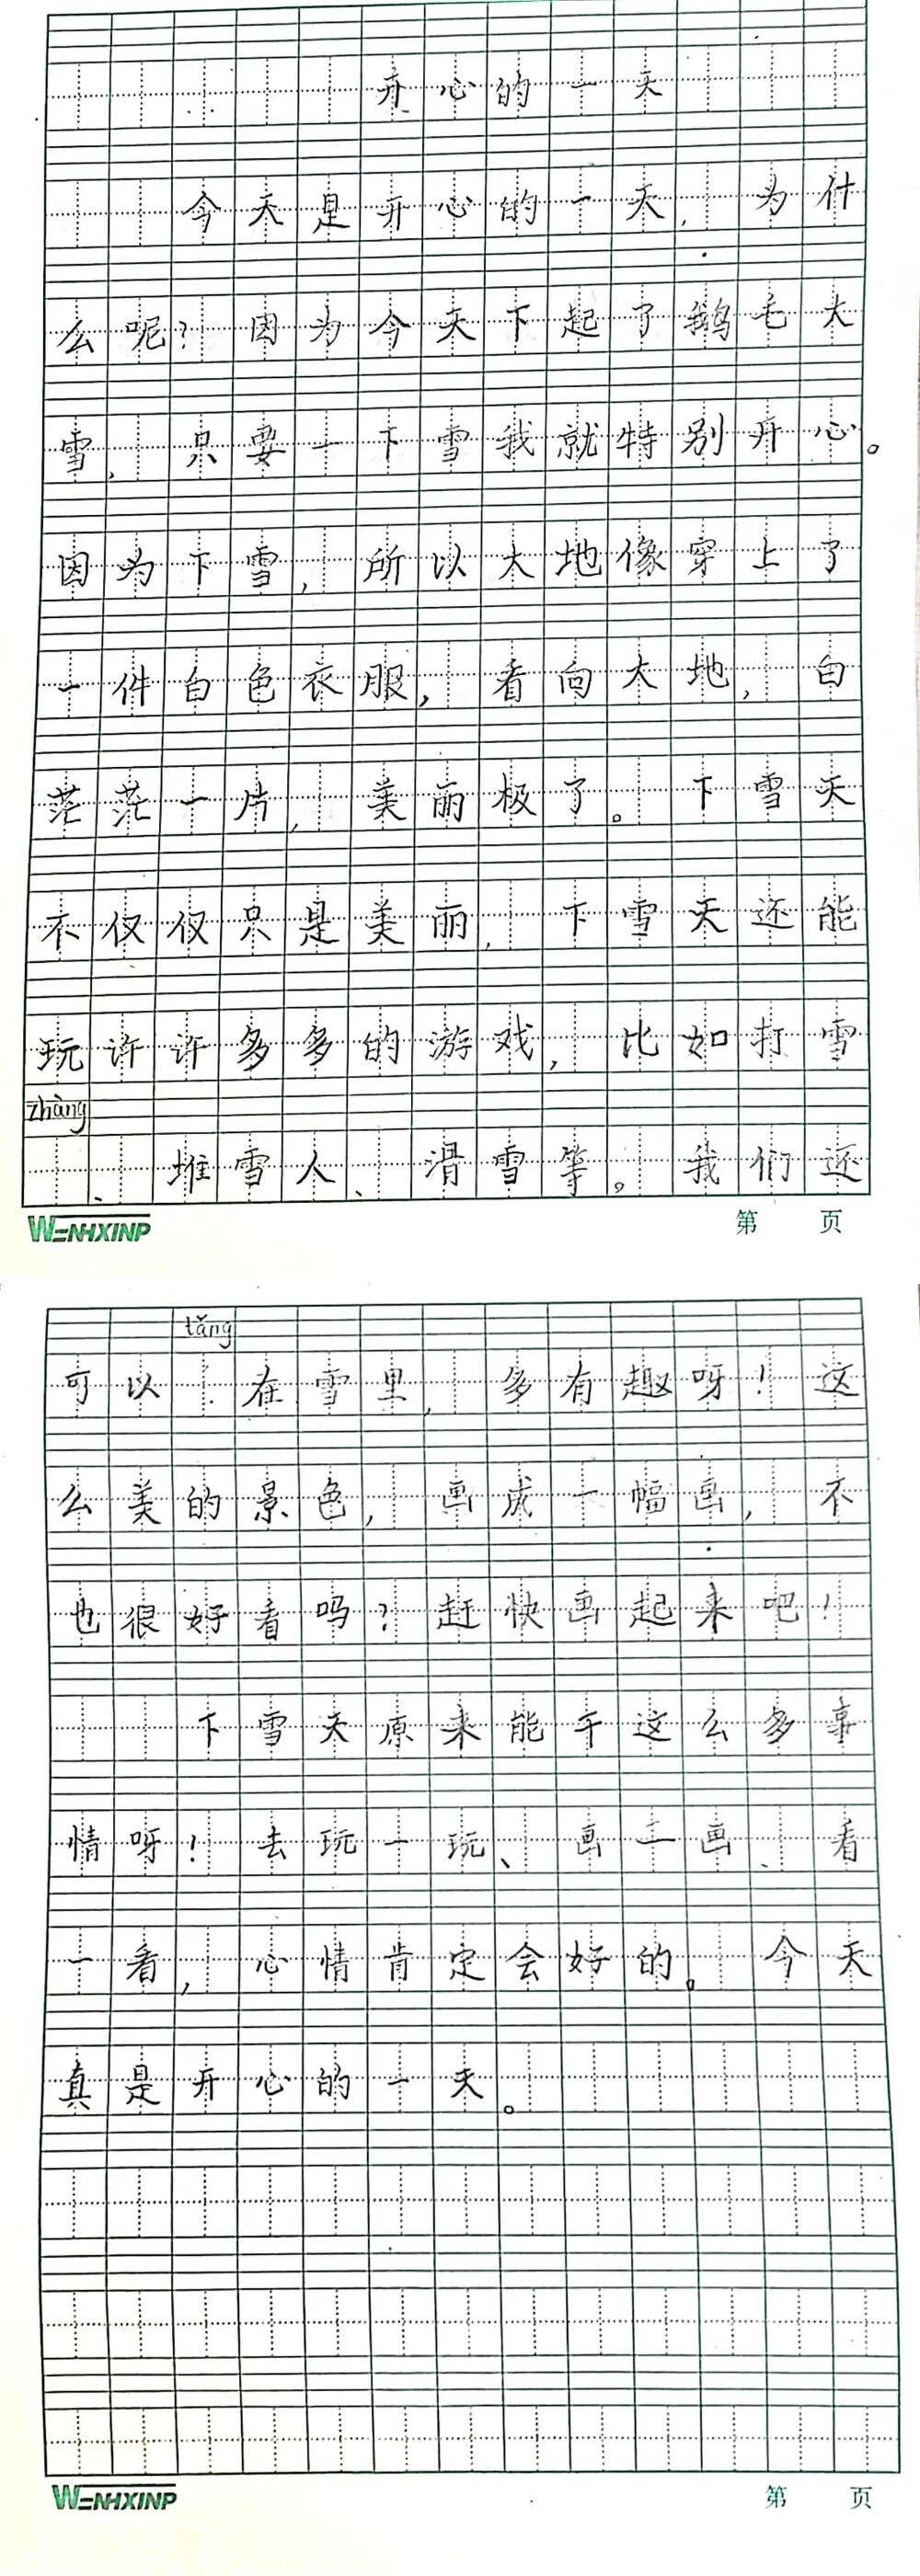 开心的一天
今天是开心的一天，为什
么呢？因为今天下起了鹅毛大
雪，只要一下雪我就特别开心。
因为下雪，所以大地像穿上了
一件白色衣服，看向大地，白
茫茫一片，美丽极了。下雪天
不仅仅只是美丽，下雪天还能
玩许许多多的游戏，比如打雪
zhàng
、堆雪人、滑雪等。我们还
WENHXINP
第 页
tǎng
可以 在雪里，多有趣呀！这
么美的景色，画成一幅画，不
也很好看吗？赶快画起来吧！
下雪天原来能干这么多事
情呀！去玩一玩、画一画、看
一看，心情肯定会好的。今天
真是开心的一天。
WENHXINP
第 页